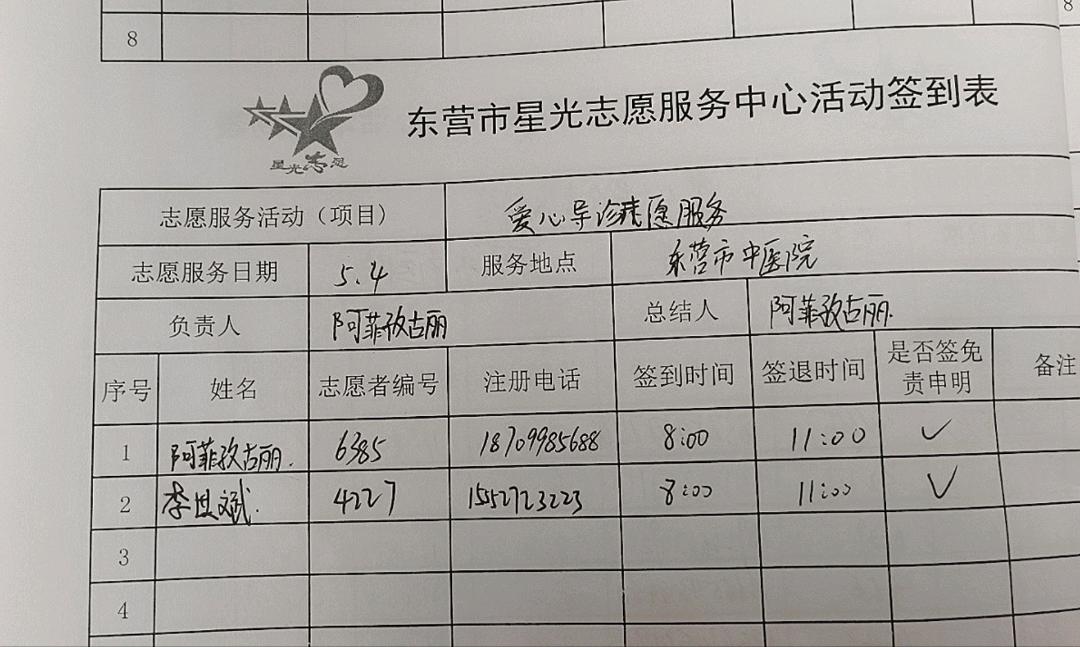 8
8
星光志愿
东营市星光志愿服务中心活动签到表
志愿服务活动（项目） 爱心导诊志愿服务
志愿服务日期 5.4 服务地点 东营市中医院
负责人 阿菲孜古丽 总结人 阿菲孜古丽.
序号 姓名 志愿者编号 注册电话 签到时间 签退时间 是否签免责申明 备注
1 阿菲孜古丽. 6385 18709985688 8:00 11:00 ✓
2 李世斌. 4227 1552723223 8:00 11:00 ✓
3
4